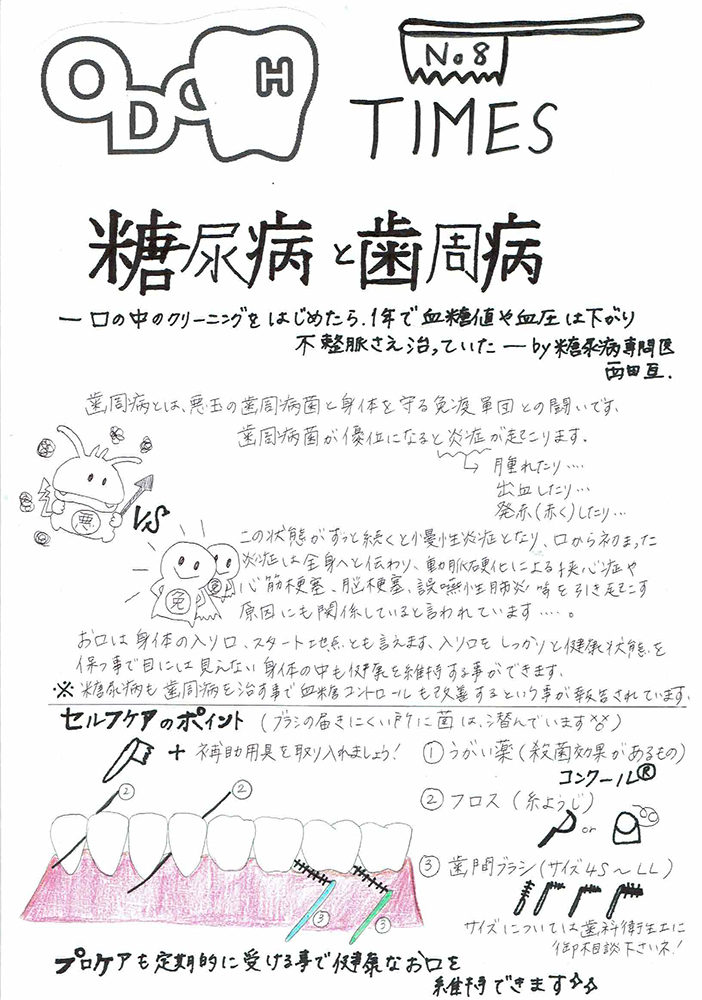 ODCH
No8
TIMES
糖尿病と歯周病
ー口の中のクリーニングをはじめたら、1年で血糖値や血圧は下がり
不整脈さえ治っていたーby糖尿病専門医
西田亙.
歯周病とは、悪玉の歯周病菌と身体を守る免疫軍団との闘いです。
歯周病菌が優位になると炎症が起こります。
腫れたり….
出血したり…
発赤(赤く)したり…
悪
VS
免
免
この状態がずっと続くと慢性炎症となり、口から初まった
炎症は全身へと伝わり、動脈硬化による狭心症や
心筋梗塞、脳梗塞、誤嚥性肺炎等を引き起こす
原因にも関係していると言われています….。
お口は身体の入り口、スタート地点とも言えます、入り口をしっかりと健康状態を
保つ事で目には見えない身体の中も健康を維持する事ができます。
※糖尿病も歯周病を治す事で血糖コントロールも改善するという事が報告されています.
セルフケアのポイント(ブラシの届きにくい所に菌は、潜んでいます)
+補助用具を取り入れましょう!
①うがい薬(殺菌効果があるもの)
コンクール®
②フロス(糸ようじ)
or
③歯間ブラシ(サイズ4S~LL)
サイズについては歯科衛生士に
御相談下さいネ!
②
②
③
③
プロケアも定期的に受ける事で健康なお口を
維持できます